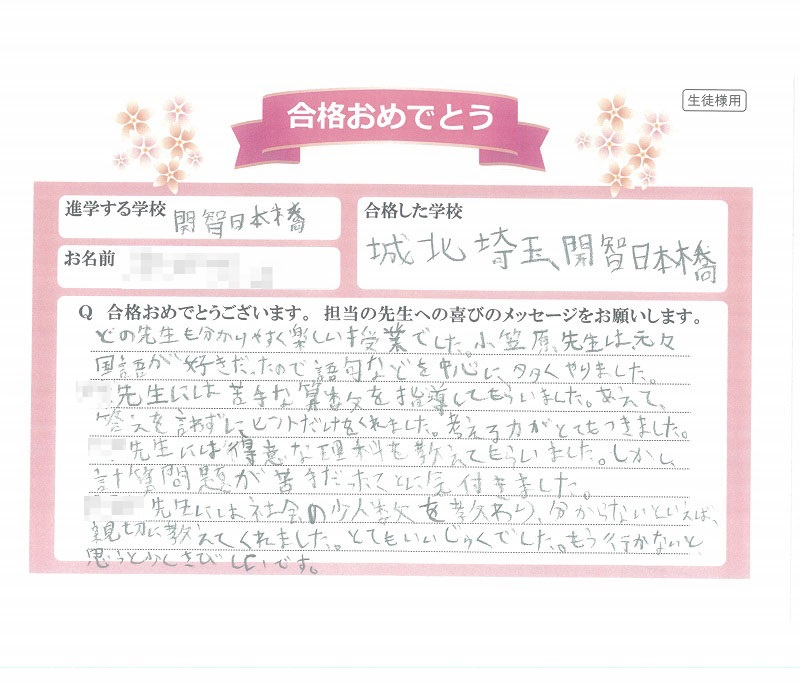 生徒様用
合格おめでとう
進学する学校 開智日本橋
合格した学校
城北埼玉、開智日本橋
お名前
Q 合格おめでとうございます。 担当の先生への喜びのメッセージをお願いします。
どの先生も分かりやすく楽しい授業でした。小笠原先生は元々
国語が好きだったので語句などを中心に、多くやりました。
先生には苦手な算数を指導してもらいました。あえて、
答えを言わずにヒントだけをくれました。考える力がとてもつきました。
先生には得意な理科を教えてもらいました。しかし、
計算問題が苦手だったことに気付きました。
先生には社会の少人数を教わり、分からないといえば、
親切に教えてくれました。とてもいいじゅくでした。もう行かないと
思うと少しさびしいです。